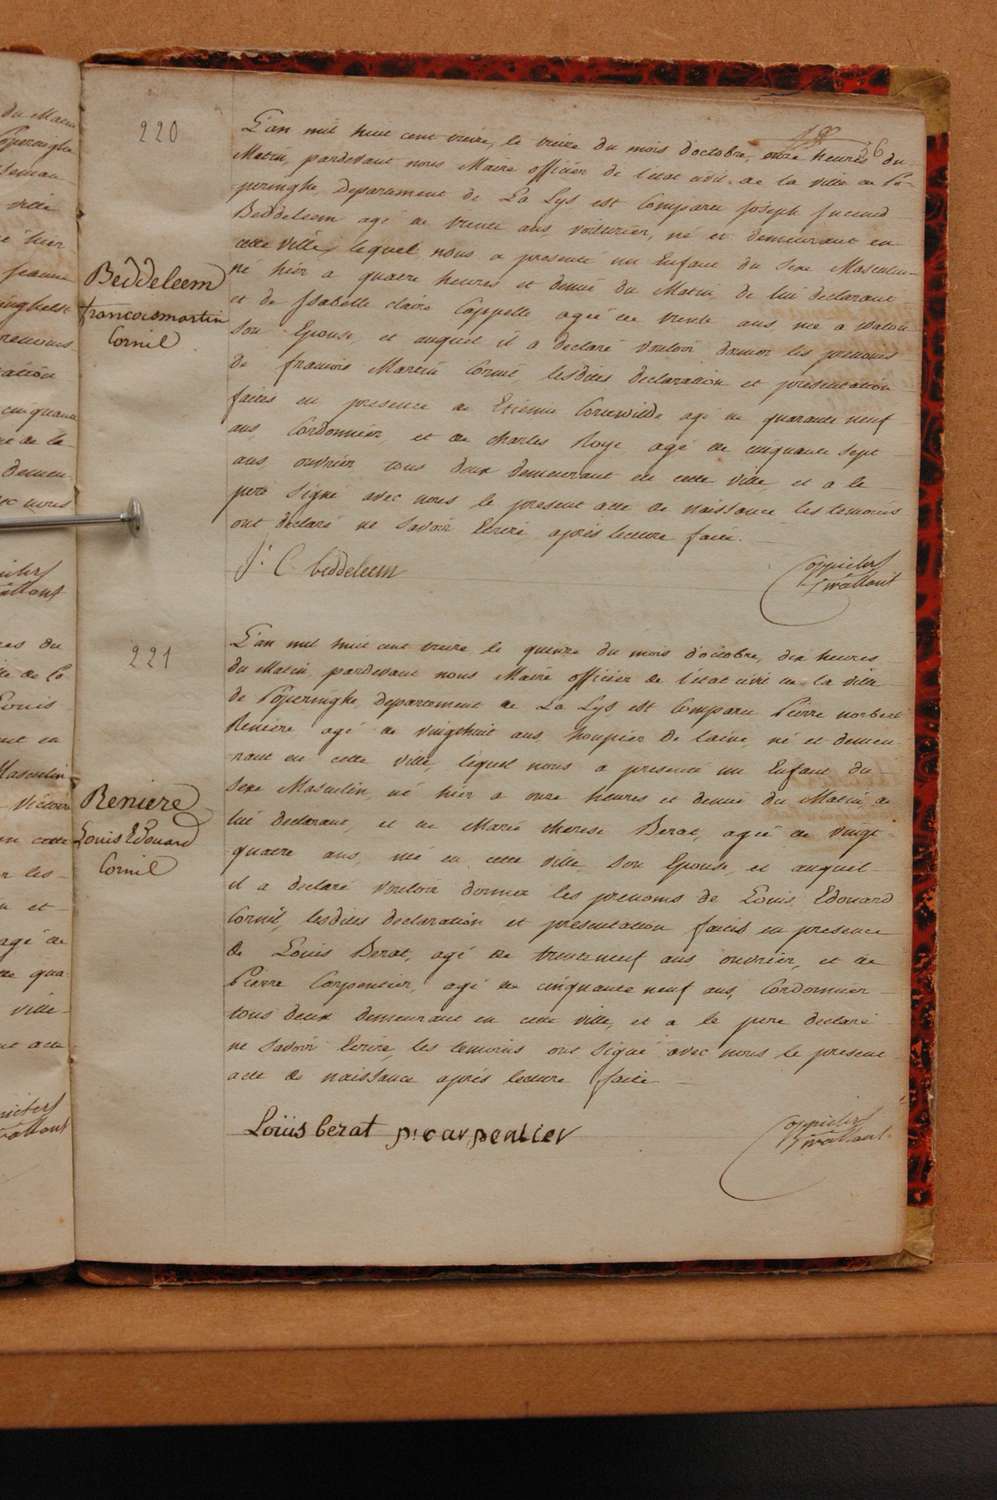 56
220
L'an mil huit cent treize, le treize du mois d'octobre, onze heures du
Matin, pardevant nous Maire officier de l'etat civil de la ville de Po-
peringhe, departement de La Lys est Comparu Joseph
Beddeleem agé de trente ans voiturier, né et demeurant en
cette ville, lequel nous a presenté un Enfant du Sexe Masculin
né hier a quatre heures et demie du Matin, de lui declarant
et de Isabelle claire Cappelle agée de trente ans, née a watou
Son Epouse, et auquel il a declaré vouloir donner les prenoms
de francois Martin Cornil, lesdites declaration et presentation
faites en presence de Etienne Corewilde agé de quarante neuf
ans, Cordonnier, et de Charles Roye agé de cinquante sept
ans, ouvrier tous deux demeurant en cette ville, et a le
pere Signé avec nous le present acte de naissance les temoins
ont declaré ne Savoir Ecrire, après lecture faite.
Beddeleem
francoismartin
Cornil
J. C. beddeleem
221
L'an mil huit cent treize le quinze du mois d'octobre, dix heures
du Matin, pardevant nous Maire officier de l'etat civil de la ville
de Poperinghe, departement de La Lys est Comparu Pierre norbert
Reniere agé de vingthuit ans, houpier de laine, né et demeu-
rant en cette ville, lequel nous a presenté un Enfant du
Sexe Masculin, né hier a onze heures et demie du Matin, de
lui declarant, et de Marie therese Berat, agée de vingt
quatre ans, née en cette ville Son Epouse, et auquel
il a declaré vouloir donner les prenoms de Louis Edouard
Cornil, lesdites declaration et presentation faites en presence
de Louis Berat, agé de trenteneuf ans ouvrier, et de
Pierre Carpentier, agé de cinquante neuf ans, Cordonnier
tous deux demeurant en cette ville, et a le pere declaré
ne Savoir Ecrire, les temoins ont Signé avec nous le present
acte de naissance après lecture faite
Reniere
Louis Edouard
Cornil
Loüis berat p: carpentier